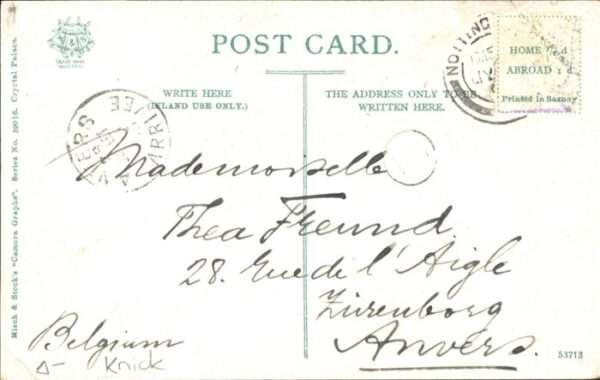 POST CARD.
WRITE HERE
(INLAND USE ONLY.)
THE ADDRESS ONLY TO BE
WRITTEN HERE.
HOME ½d
ABROAD 1d
Printed in Saxony
NOTTING
ARRIVÉE
ANVERS
Mademoiselle
Thea Freund.
28. Rue de l'Aigle
Zurenborg
Anvers.
Belgium
Knick
Misch & Stock's "Camera Graphs". Series No. 39016. Crystal Palace.
53713